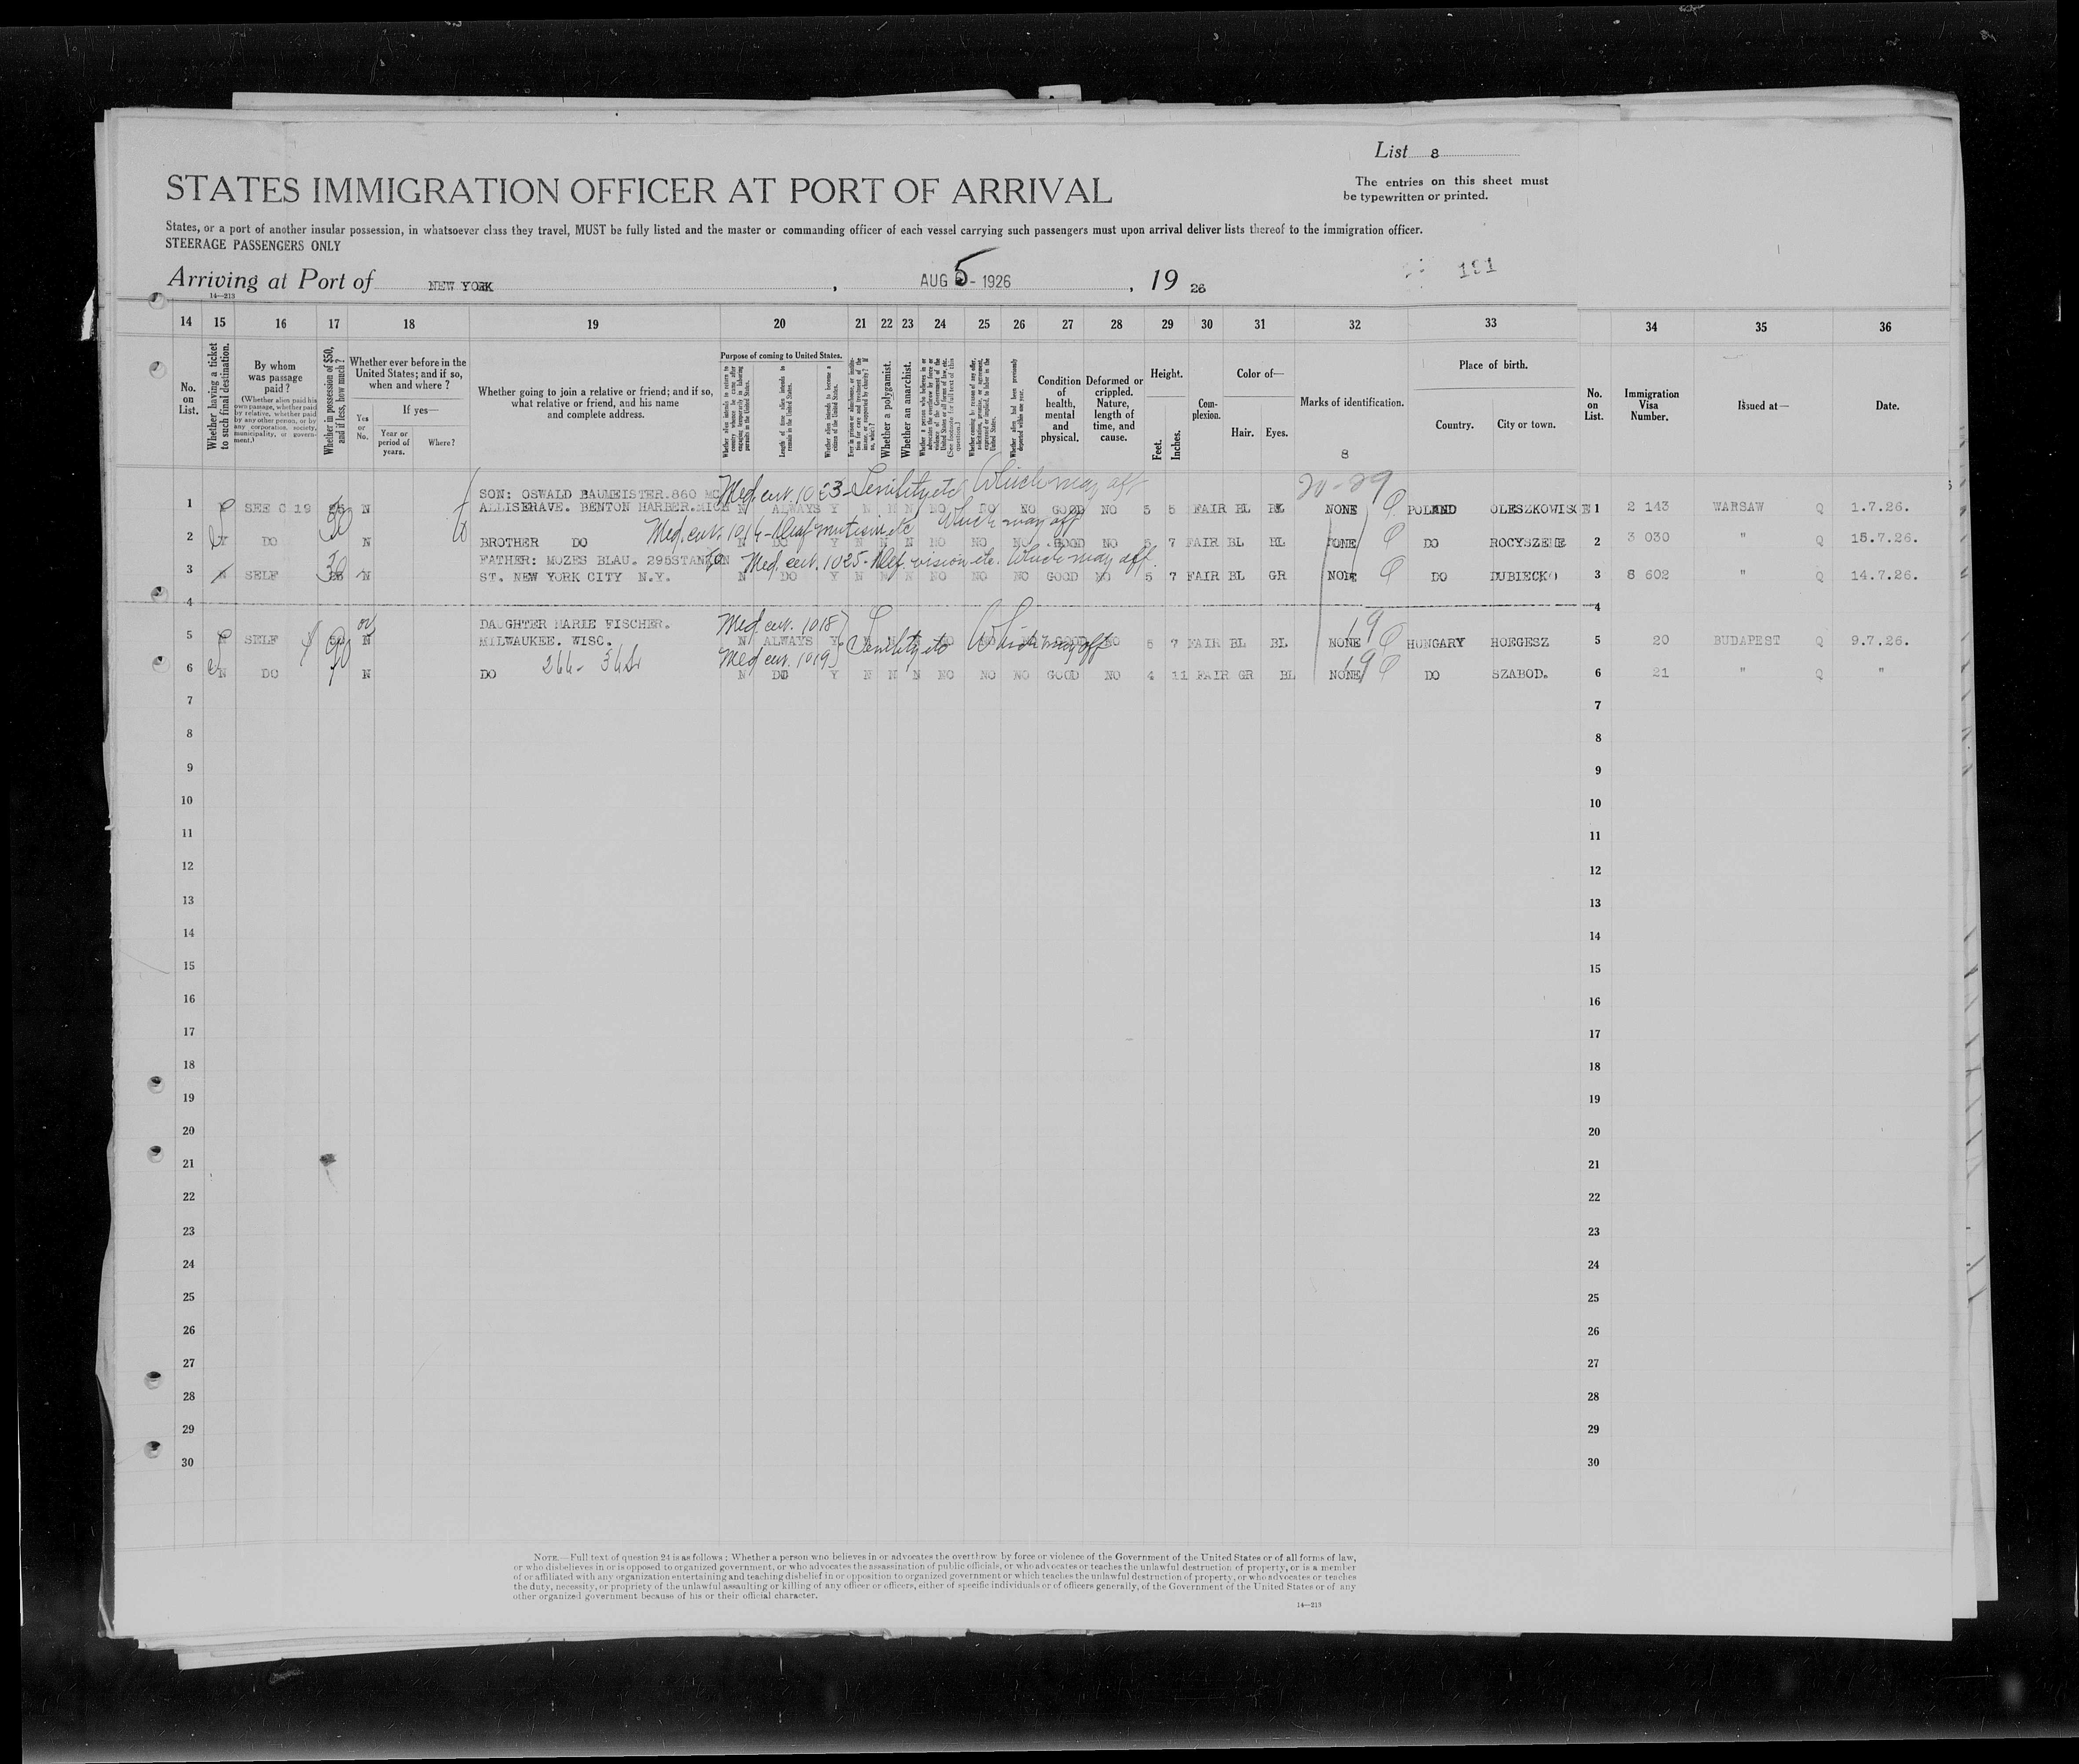 List 8
STATES IMMIGRATION OFFICER AT PORT OF ARRIVAL
The entries on this sheet must
be typewritten or printed.
States, or a port of another insular possession, in whatsoever class they travel, MUST be fully listed and the master or commanding officer of each vessel carrying such passengers must upon arrival deliver lists thereof to the immigration officer.
STEERAGE PASSENGERS ONLY
Arriving at Port of NEW YORK, AUG 5 - 1926, 19 26
14—213
14 15 16 17 18 19 20 21 22 23 24 25 26 27 28 29 30 31 32 33 34 35 36
No. on List.
Whether having a ticket to such final destination.
By whom was passage paid?
(Whether alien paid his own passage, whether paid by relative, whether paid by any other person, or by any corporation, society, municipality, or government.)
Whether in possession of $50, and if less, how much?
Whether ever before in the United States; and if so, when and where?
Yes or No.
If yes—
Year or period of years.
Where?
Whether going to join a relative or friend; and if so, what relative or friend, and his name and complete address.
Purpose of coming to United States.
Whether alien intends to return to country whence he came after engaging temporarily in laboring pursuits in the United States.
Length of time alien intends to remain in the United States.
Whether alien intends to become a citizen of the United States.
Whether a polygamist.
Whether an anarchist.
Condition of health, mental and physical.
Deformed or crippled. Nature, length of time, and cause.
Height.
Feet.
Inches.
Complexion.
Color of—
Hair.
Eyes.
Marks of identification.
8
Place of birth.
Country.
City or town.
No. on List.
Immigration Visa Number.
Issued at—
Date.
Med. cert. 1023 - Senility etc Which may aff
20-29
SON: OSWALD BAUMEISTER. 860 MC
1 SEE C 19 30 N ALLISERAVE. BENTON HARBER. MICH N ALWAYS Y N N N NO NO NO GOOD NO 5 5 FAIR BL BL NONE POLAND OLESZKOWISCE 1 2 143 WARSAW Q 1.7.26.
Med. cert. 1016 - Deaf mutism etc Which may aff
2 DO N BROTHER DO N DO Y N N N NO NO NO GOOD NO 5 7 FAIR BL BL NONE DO ROCYSZENE 2 3 030 " Q 15.7.26.
FATHER: MOZES BLAU. 295 STANTON Med. cert. 1025 - Def. vision etc. Which may aff.
3 N SELF 30 N ST. NEW YORK CITY N.Y. N DO Y N N N NO NO NO GOOD NO 5 7 FAIR BL GR NONE DO DUBIECKO 3 8 602 " Q 14.7.26.
4 4
DAUGHTER MARIE FISCHER. Med cert. 1018
5 SELF $ 90 N MILWAUKEE. WISC. N ALWAYS Y Senility etc Which may aff NO 5 7 FAIR BL BL NONE HUNGARY HOEGESZ 5 20 BUDAPEST Q 9.7.26.
Med cert. 1019
6 N DO N DO N DO Y N N N NO NO NO GOOD NO 4 11 FAIR GR BL NONE DO SZABOD. 6 21 " Q "
7 7
8 8
9 9
10 10
11 11
12 12
13 13
14 14
15 15
16 16
17 17
18 18
19 19
20 20
21 21
22 22
23 23
24 24
25 25
26 26
27 27
28 28
29 29
30 30
NOTE.—Full text of question 24 is as follows: Whether a person who believes in or advocates the overthrow by force or violence of the Government of the United States or of all forms of law,
or who disbelieves in or is opposed to organized government, or who advocates the assassination of public officials, or who advocates or teaches the unlawful destruction of property, or is a member
of or affiliated with any organization entertaining and teaching disbelief in or opposition to organized government or which teaches the unlawful destruction of property, or who advocates or teaches
the duty, necessity, or propriety of the unlawful assaulting or killing of any officer or officers, either of specific individuals or of officers generally, of the Government of the United States or of any
other organized government because of his or their official character.
14—213